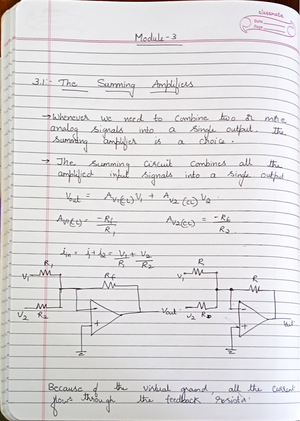 classmate
Date
Page
Module - 3
3.1:- The Summing Amplifiers
→ Whenever we need to combine two or more
analog signals into a single output. The
summing amplifier is a choice.
→ The summing circuit combines all the
amplified input signals into a single output
Vout = Av1(CL) V1 + Av2(CL) V2
Av1(CL) = -Rf/R1 Av2(CL) = -Rf/R2
iin = i1 + i2 = V1/R1 + V2/R2
V1 R1 Rf V2 R2 Vout
V1 R1 R V2 R2 Vout
Because of the virtual ground, all the current
flows through the feedback resistor.